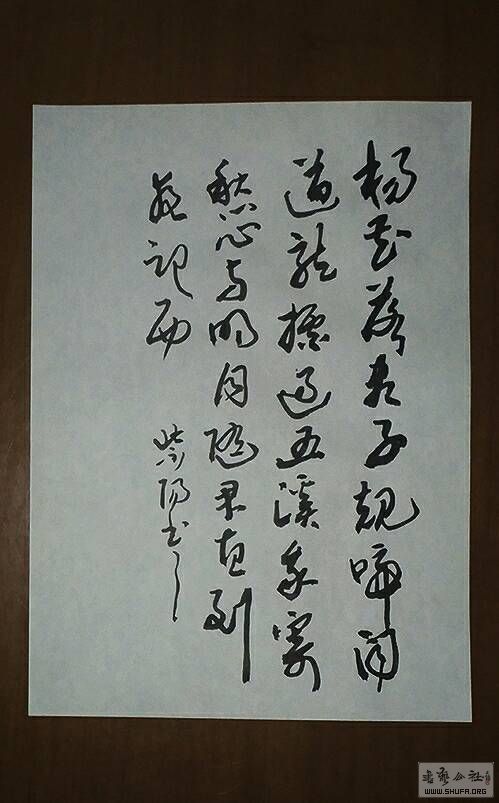 杨花落尽子规啼闻
道龙標过五溪我寄
愁心与明月随君直到
夜郎西
紫阳书
书艺公社
WWW.SHUFA.ORG